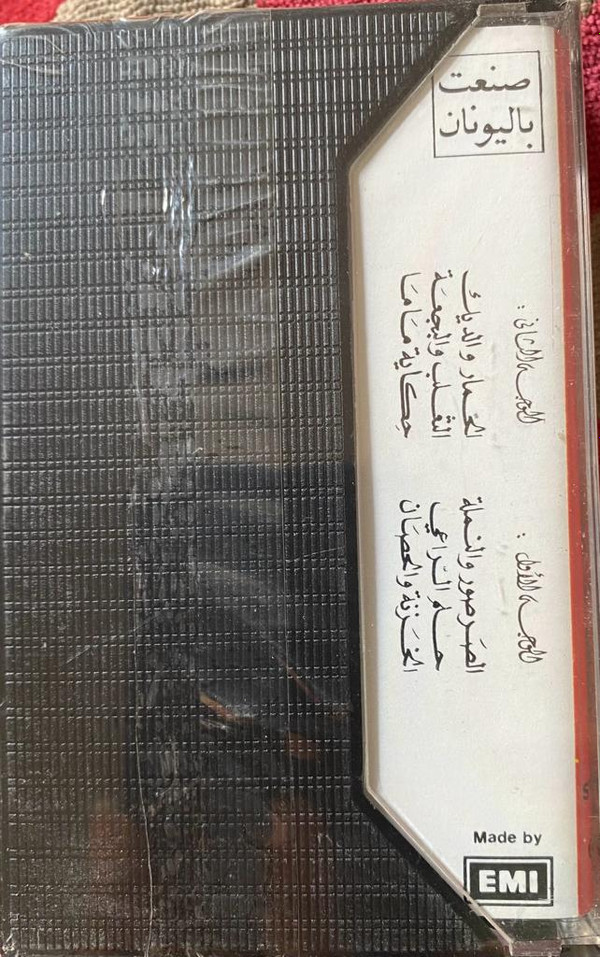 صنعت
باليونان
الوجه الأول :
الصرصور والنملة
حلم الراعي
الخزنة والحصان
الوجه الثاني :
الحمار والديك
الثعلب والبجعة
حكاية ماما
Made by
EMI